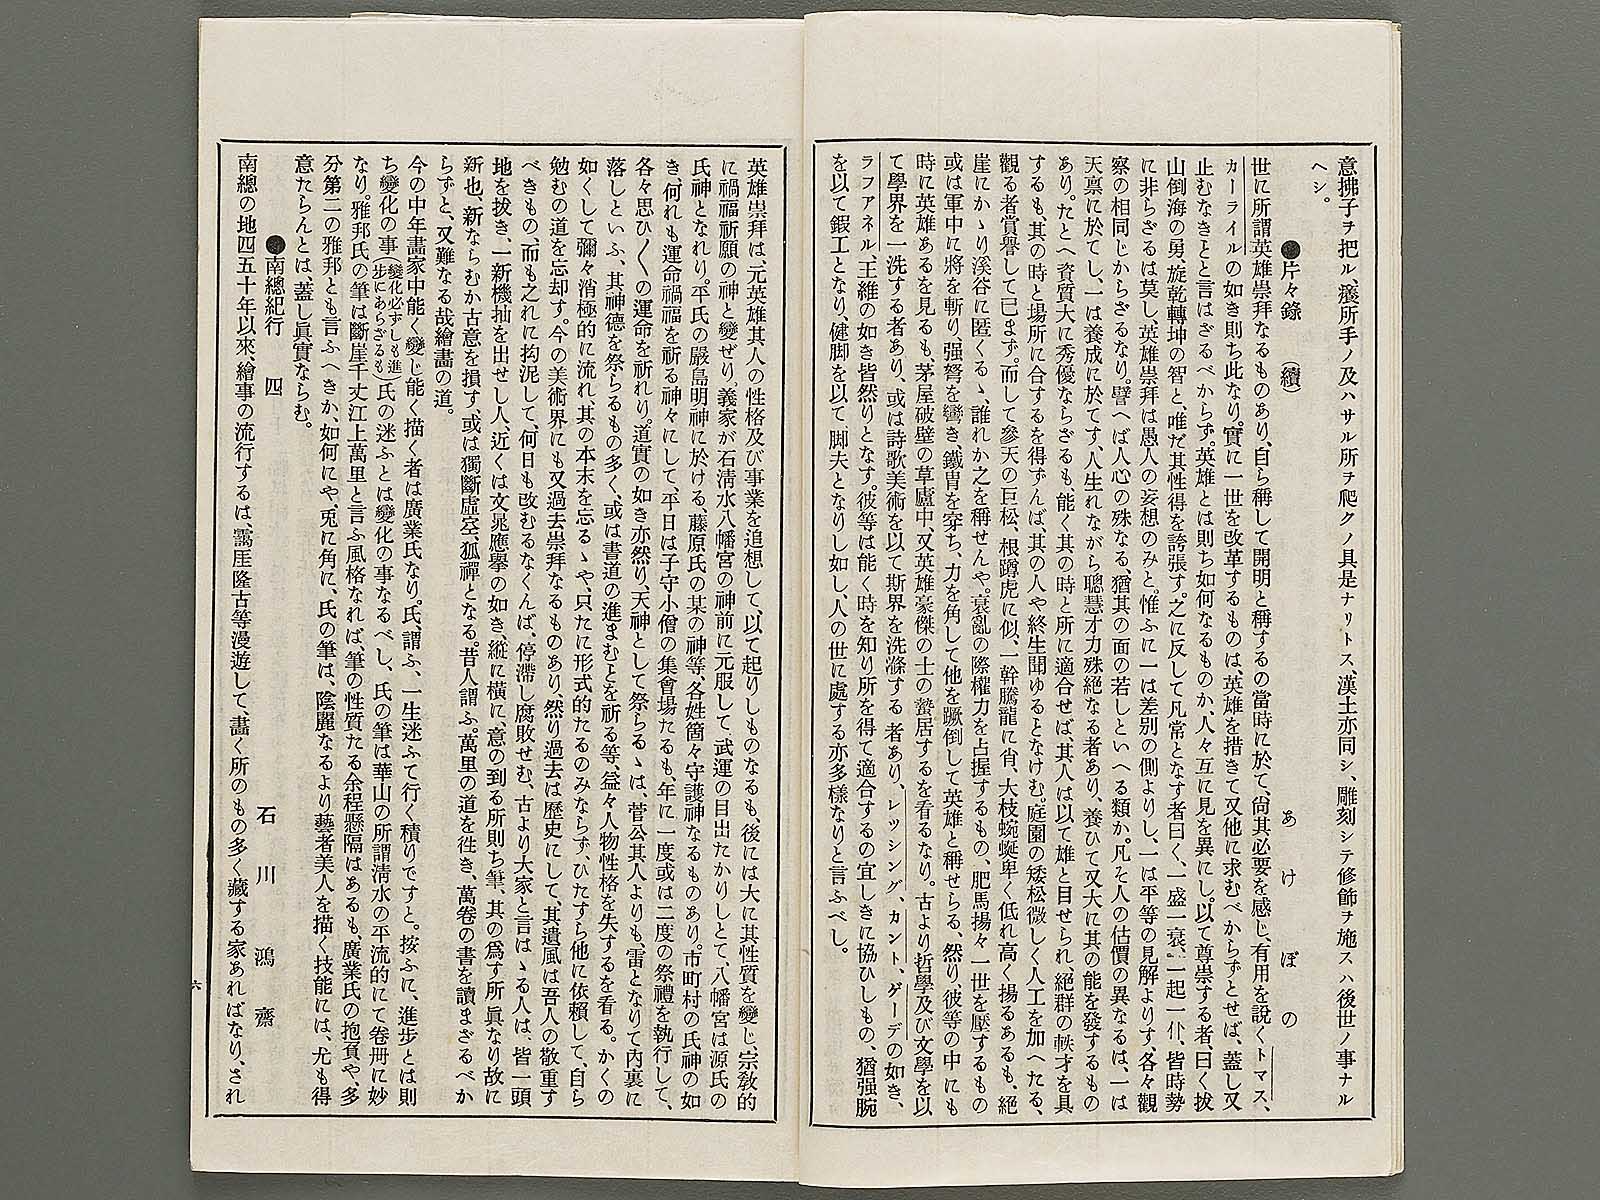 意拂子ヲ把ル癢所手ノ及ハサル所ヲ爬クノ具是ナリトス、漢土亦同シ、雕刻シテ修飾ヲ施スハ後世ノ事ナル
ヘシ。
●片々錄 (續)
あけぼの
世に所謂英雄崇拜なるものあり、自ら稱して開明と稱するの當時に於て、尙其必要を感じ、有用を說くトマス、
カーライルの如き則ち此なり。實に一世を改革するものは、英雄を措きて又他に求むべからずとせば、蓋し又
止むなきとと言はざるべからず。英雄とは則ち如何なるものか、人々互に見を異にし。以て尊崇する者、曰く拔
山倒海の勇、旋乾轉坤の智と、唯だ其性得を誇張す。之に反して凡常となす者曰く、一盛一衰、一起一仆、皆時勢
に非らざるは莫し、英雄崇拜は愚人の妄想のみと。惟ふに一は差別の側よりし、一は平等の見解よりす、各々觀
察の相同じからざるなり。譬へば人心の殊なる、猶其の面の若しといへる類か。凡そ人の估價の異なるは、一は
天稟に於てし、一は養成に於てす、人生れながら聰慧才力殊絕なる者あり、養ひて又大に其の能を發するもの
あり。たとへ資質大に秀優ならざるも、能く其の時と所に適合せば、其人は以て雄と目せられ、絕群の軼才を具
するも、其の時と場所に合するを得ずんば、其の人や終生聞ゆるとなけむ。庭園の矮松微しく人工を加へたる、
觀る者賞譽して已まず。而して參天の巨松、根蹲虎に似、一幹騰龍に肖、大枝蜿蜒卑く低れ高く揚るあるも、絕
崖にかゝり溪谷に匿くるゝ、誰れか之を稱せんや。衰亂の際權力を占握するもの、肥馬揚々一世を壓するもの
或は軍中に將を斬り、强弩を彎き鐵冑を穿ち、力を角して他を蹶倒して英雄と稱せらる、然り、彼等の中にも
時に英雄あるを見るも、茅屋破壁の草廬中、又英雄豪傑の士の蟄居するを看るなり。古より哲學及び文學を以
て學界を一洗する者あり、或は詩歌美術を以て斯界を洗滌する者あり、レッシング、カント、ゲーデの如き、
ラファアネル、王維の如き皆然りとなす。彼等は能く時を知り所を得て適合するの宜しきに協ひしもの、猶强腕
を以て鍜工となり、健脚を以て脚夫となりし如し、人の世に處する亦多樣なりと言ふべし。
英雄崇拜は、元英雄其人の性格及び事業を追想して、以て起りしものなるも、後には大に其性質を變じ、宗敎的
に禍福祈願の神と變ぜり。義家が石淸水八幡宮の神前に元服して、武運の目出たかりしとて、八幡宮は源氏の
氏神となれり。平氏の嚴島明神に於ける、藤原氏の某の神等、各姓箇々守護神なるものあり。市町村の氏神の如
き、何れも運命禍福を祈る神々にして、平日は子守小僧の集會場たるも、年に一度或は二度の祭禮を執行して、
各々思ひ〱の運命を祈れり。道實の如き亦然り、天神として祭らるゝは、菅公其人よりも、雷となりて內裏に
落しといふ、其神德を祭らるもの多く、或は書道の進まむとを祈る等、益々人物性格を失するを看る。かくの
如くして彌々消極的に流れ、其の本末を忘るゝや、只たに形式的たるのみならず、ひたすら他に依賴して、自ら
勉むの道を忘却す。今の美術界にも又過去崇拜なるものあり、然り過去は歷史にして、其遺風は吾人の敬重す
べきもの、而も之れに拘泥して、何日も改むるなくんば、停滯し腐敗せむ、古より大家と言はゝる人は、皆一頭
地を拔き、一新機抽を出せし人、近くは文晁應擧の如き、縱に橫に、意の到る所則ち筆、其の爲す所眞なり故に
新也、新ならむか古意を損す、或は獨斷虛空、狐禪となる。昔人謂ふ。萬里の道を徃き、萬卷の書を讀まざるべか
らずと、又難なる哉繪畫の道。
今の中年畫家中能く變じ能く描く者は廣業氏なり。氏、謂ふ、一生迷ふて行く積りですと。按ふに、進步とは則
ち變化の事(變化必ずしも進步にあらざるも)氏の迷ふとは變化の事なるべし、氏の筆は華山の所謂淸水の平流的にて卷冊に妙
なり。雅邦氏の筆は斷崖千丈江上萬里と言ふ風格なれば、筆の性質たる余程懸隔はあるも、廣業氏の抱負や、多
分第二の雅邦とも言ふへきか、如何にや、兎に角に、氏の筆は、陰麗なるより藝者美人を描く技能には、尤も得
意たらんとは、蓋し眞實ならむ。
●南總紀行 四
石川鴻齋
南總の地四五十年以來、繪事の流行するは、靄厓隆古等漫遊して、畫く所のもの多く藏する家あればなり、され
六